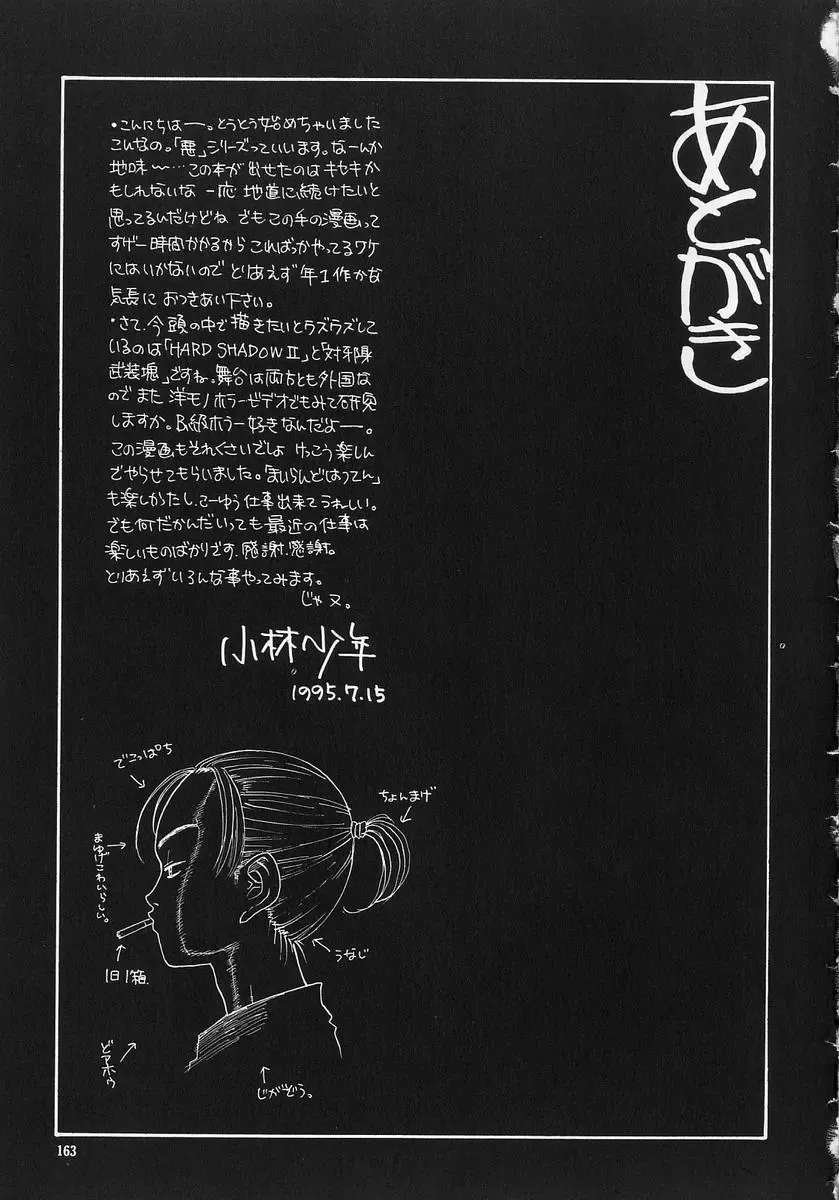 あとがき
・こんにちはー。とうとう始めちゃいました
こんなの。「悪」シリーズっていいます。なーんか
地味〜…この本が出せたのはキセキか
もしれないな 一応 地道に続けたいと
思ってるんだけどね でも この手の漫画って
すげー時間かかるから こればっかやってるワケ
にはいかないので とりあえず年1作かな
気長に おつきあい下さい。
・さて、今頭の中で描きたいとウズウズして
いるのは「HARD SHADOW II」と「対邪鬼
武装場」ですね。舞台は両方とも外国な
ので また 洋モノホラービデオでもみて研究
しますか。B級ホラー好きなんだよー。
この漫画もそれくさいでしょ けっこう楽しん
でやらせてもらいました。「まいらんどはってん」
も楽しかったし、こーゆう仕事出来てうれしい。
でも何だかんだいっても最近の仕事は
楽しいものばかりです、感謝、感謝。
とりあえずいろんな事やってみます。
じゃ又。
小林少年
1995.7.15
でこっぱち
ちょんまげ
まゆげこわいらしい。
1日1箱
うなじ
どアホウ
じがぞう。
163